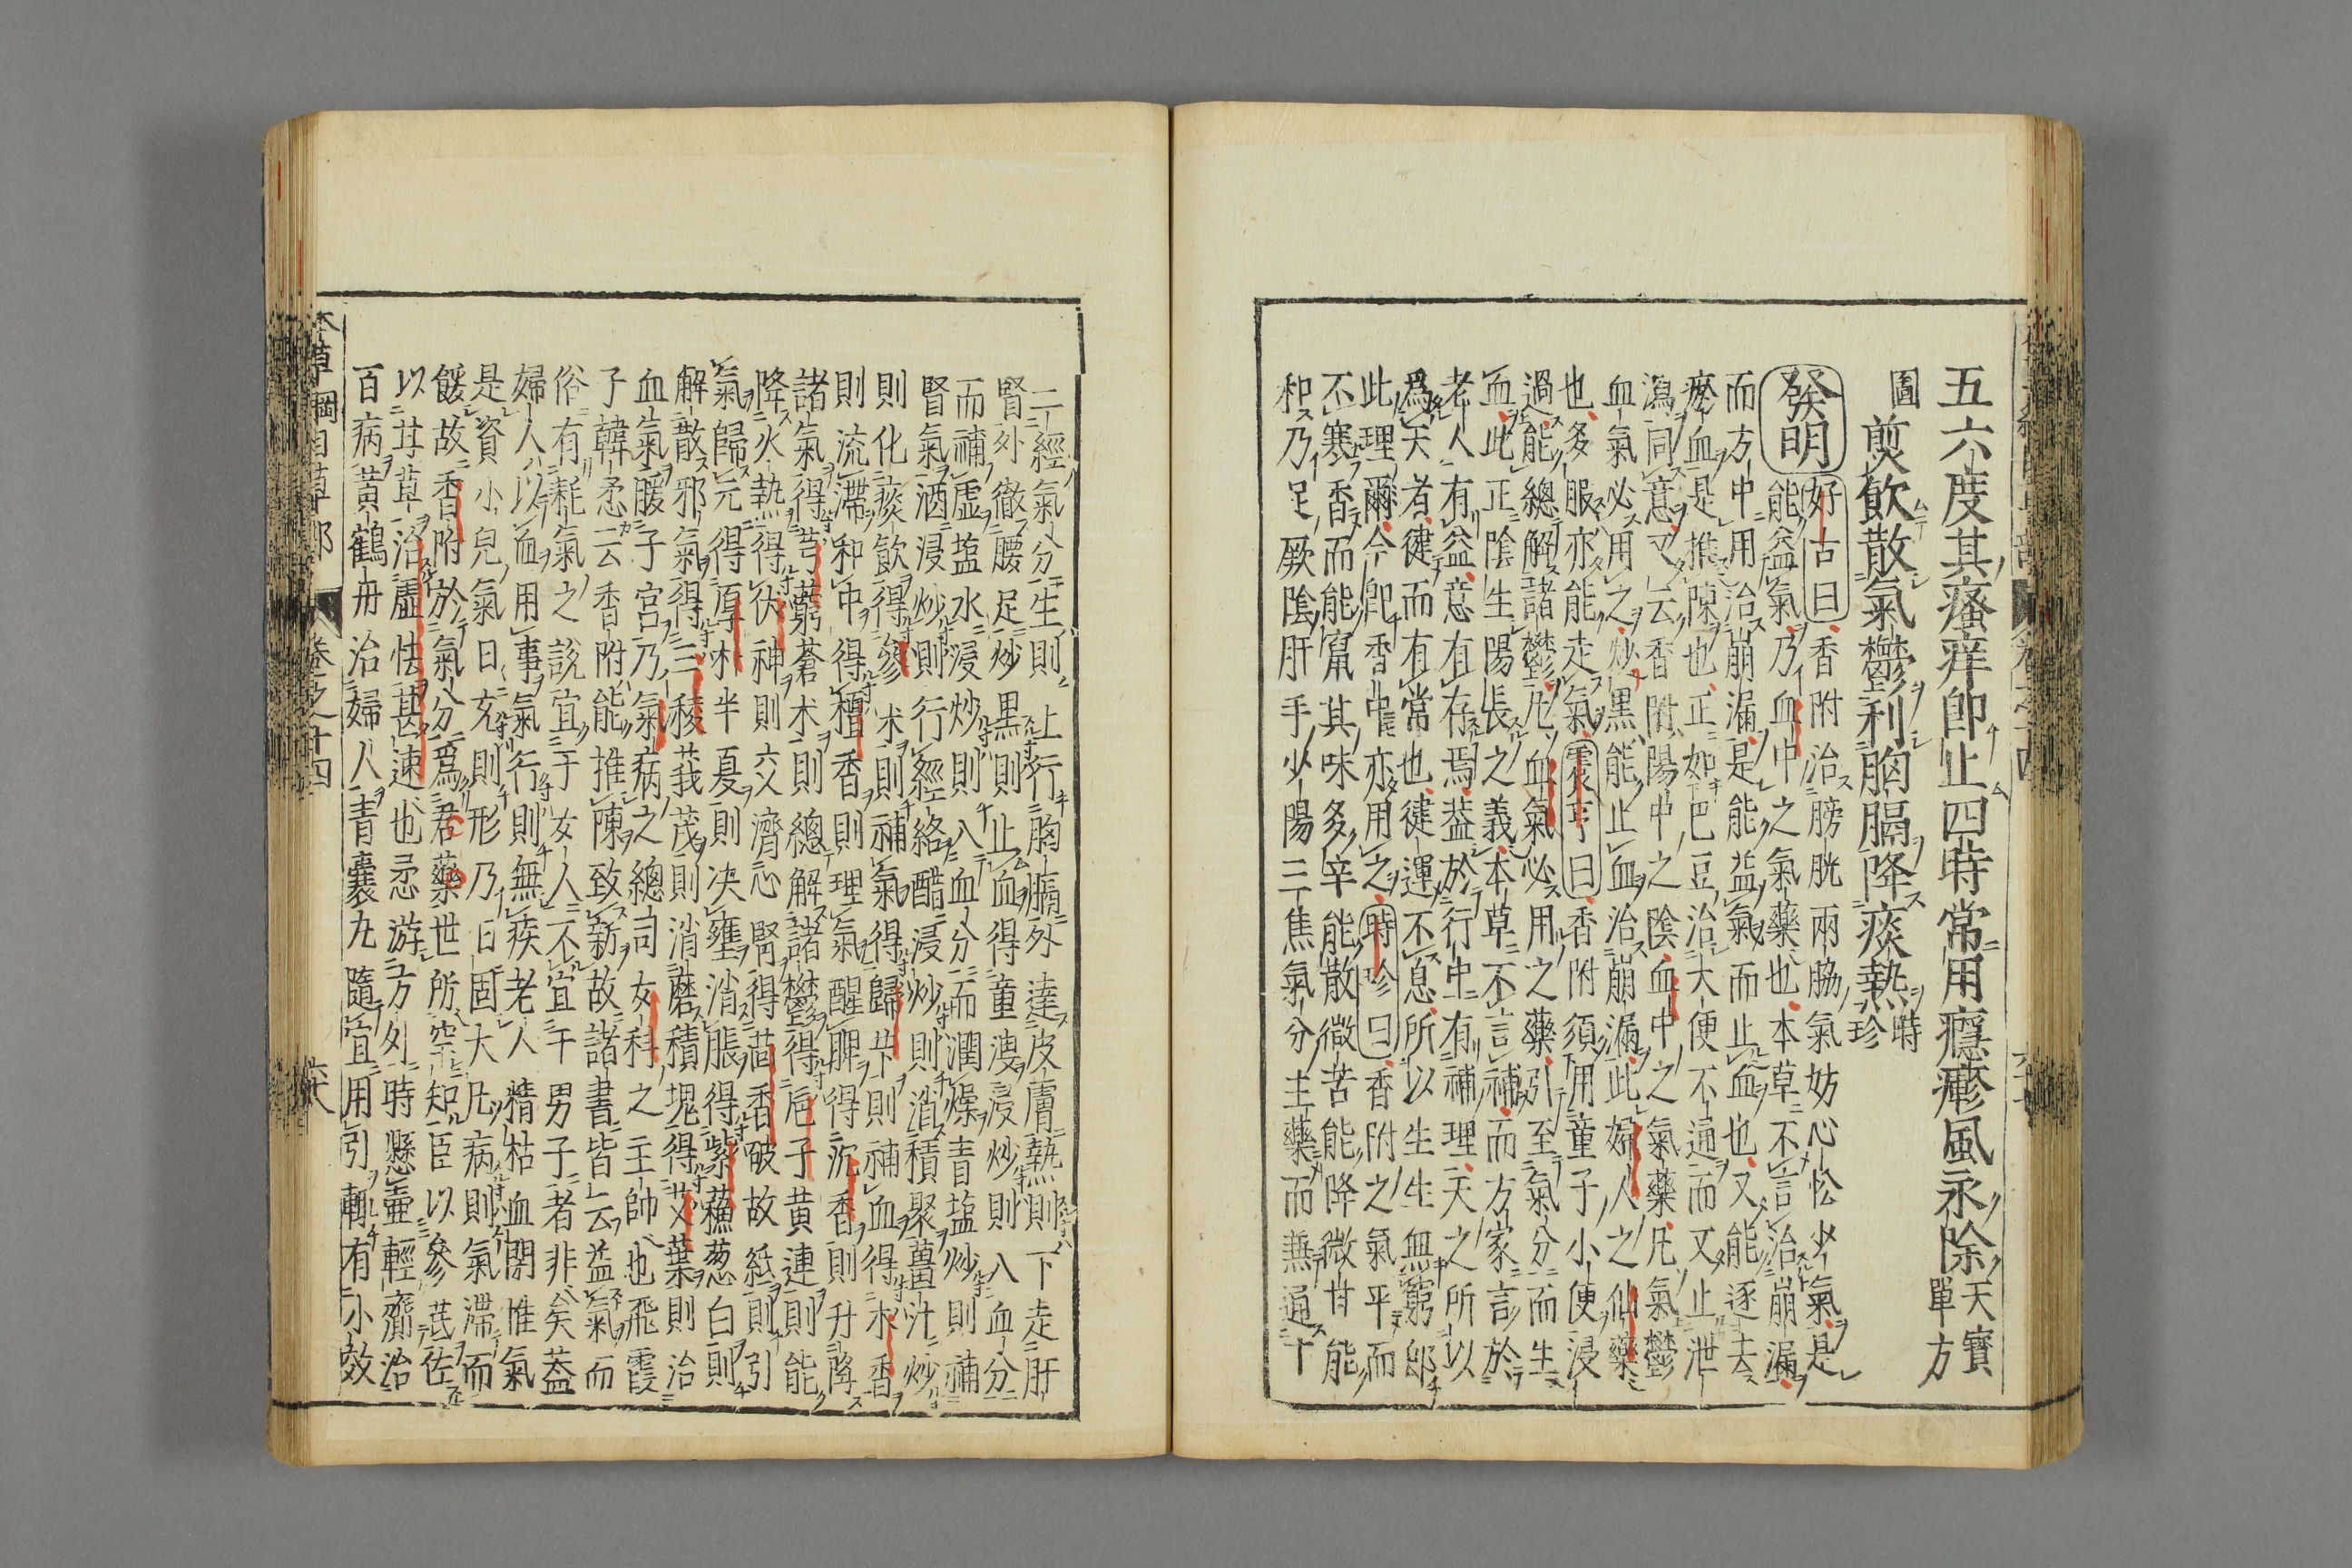 五六度其瘙痒即止四時常用癮瘮風永除天寶單方
圖煎飲散氣鬱利胸膈降痰熱時珍
發明好古曰香附治膀胱兩脇氣妨心忪少氣是
能益氣乃血中之氣藥也本草不言治崩漏
而方中用治崩漏是能益氣而止血也又能逐去
瘀血是推陳也正如巴豆治大便不通而又止泄
瀉同意又云香附陽中之陰血中之氣藥凡氣鬱
血氣必用之炒黑能止血治崩漏此婦人之仙藥
也多服亦能走氣震亨曰香附須用童子小便浸
過能總解諸鬱凡血氣必用之藥引至氣分而生
血此正陰生陽長之義本草不言補而方家言於
老人有益意有存焉蓋於行中有補理天之所以
爲天者健而有常也健運不息所以生生無窮卽
此理爾今卽香中亦用之時珍曰香附之氣平而
不寒香而能竄其味多辛能散微苦能降微甘能
和乃足厥陰肝手少陽三焦氣分主藥而兼通十
二經氣分生則上行胸膈外達皮膚熟則下走肝
腎外徹腰足炒黑則止血得童溲浸炒則入血分
而補虛塩水浸炒則入血分而潤燥青塩炒則補
腎氣酒浸炒則行經絡醋浸炒則消積聚薑汁炒
則化痰飲得參朮則補氣得歸芐則補血得木香
則流滯和中得檀香則理氣醒脾得沉香則升降
諸氣得芎藭蒼朮則總解諸鬱得巵子黃連則能
降火熱得伏神則交濟心腎得茴香破故紙則引
氣歸元得厚朴半夏則决壅消脹得紫蘓葱白則
解散邪氣得三稜莪茂則消磨積塊得艾葉則治
血氣暖子宮乃氣病之總司女科之主帥也飛霞
子韓𢘅云香附能推陳致新故諸書皆云益氣而
俗有耗氣之說宜于女人不宜于男子者非矣蓋
婦人以血用事氣行則無疾老人精枯血閉惟氣
是資小兒氣日充則形乃日固大凡病則氣滯而
餒故香附於氣分爲君藥世所罕知臣以參芪佐
以甘草治虛怯甚速也𢘅游方外時懸壺輕齎治
百病黃鶴丹治婦人青囊丸隨宜用引輒有小效
本草綱目草部 卷之十四 六十八